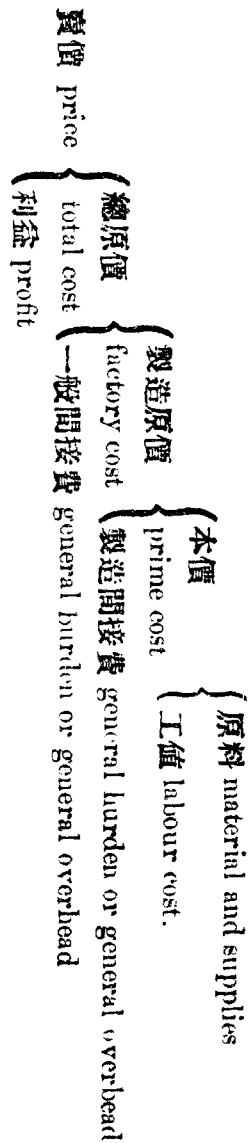 賣價 price
總原價
total cost
利益 profit
製造原價
factory cost
一般間接費 general burden or general overhead
本價
prime cost
製造間接費 general burden or general overhead
原料 material and supplies
工值 labour cost.